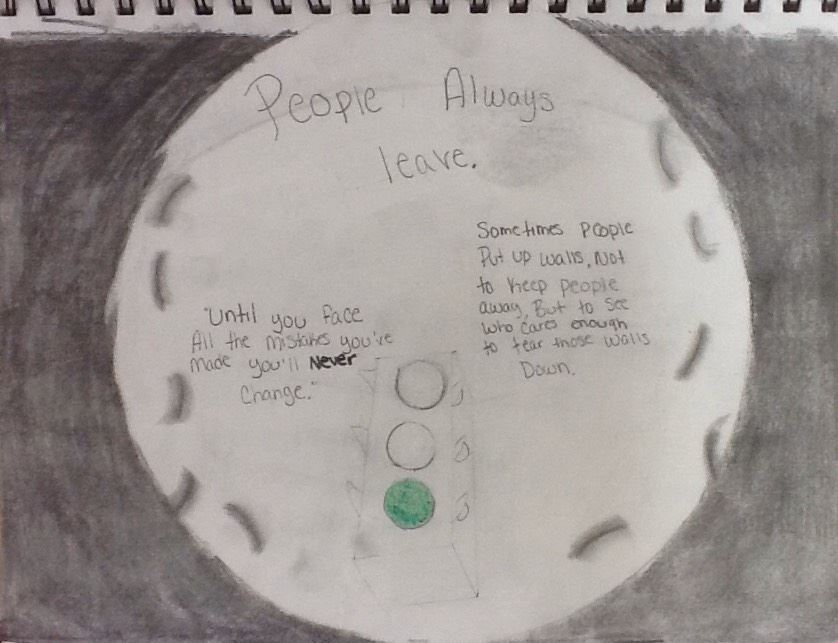 People Always
leave.
"Until you face
All the mistakes you've
Made you'll Never
Change."
Sometimes People
Put up walls, Not
to keep people
away, But to See
who cares enough
to tear those walls
Down.